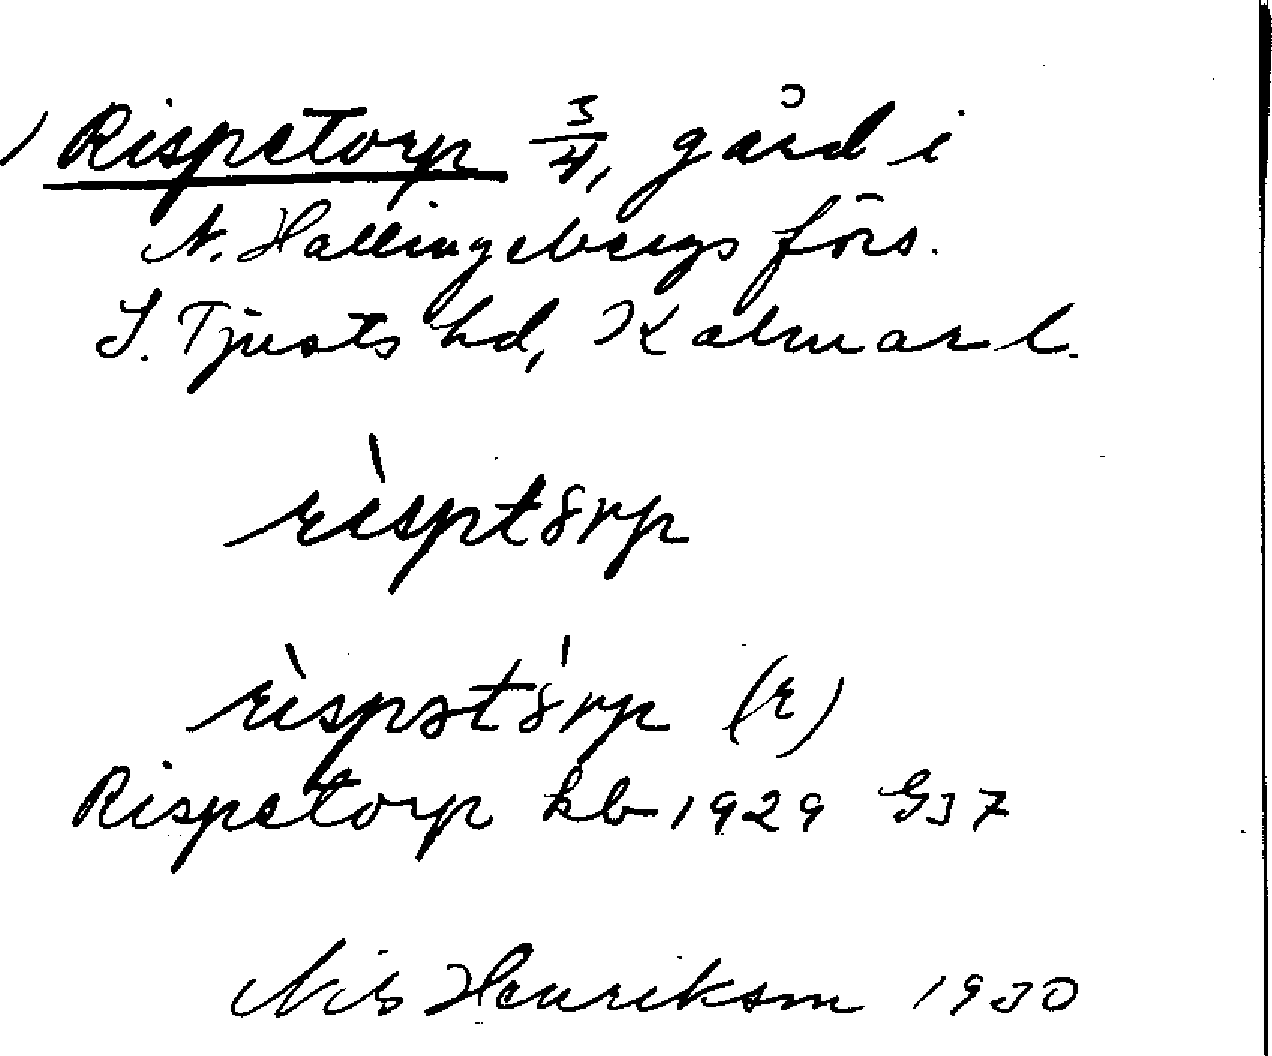 Rispetorp 3/4, gård i
N. Hallingebergs förs.
S. Tjusts hd, Kalmar l.
rìsptȣrp
rìspətȣ́rp (r)
Rispetorp kb 1929 GJ7
Nils Henriksson 1930